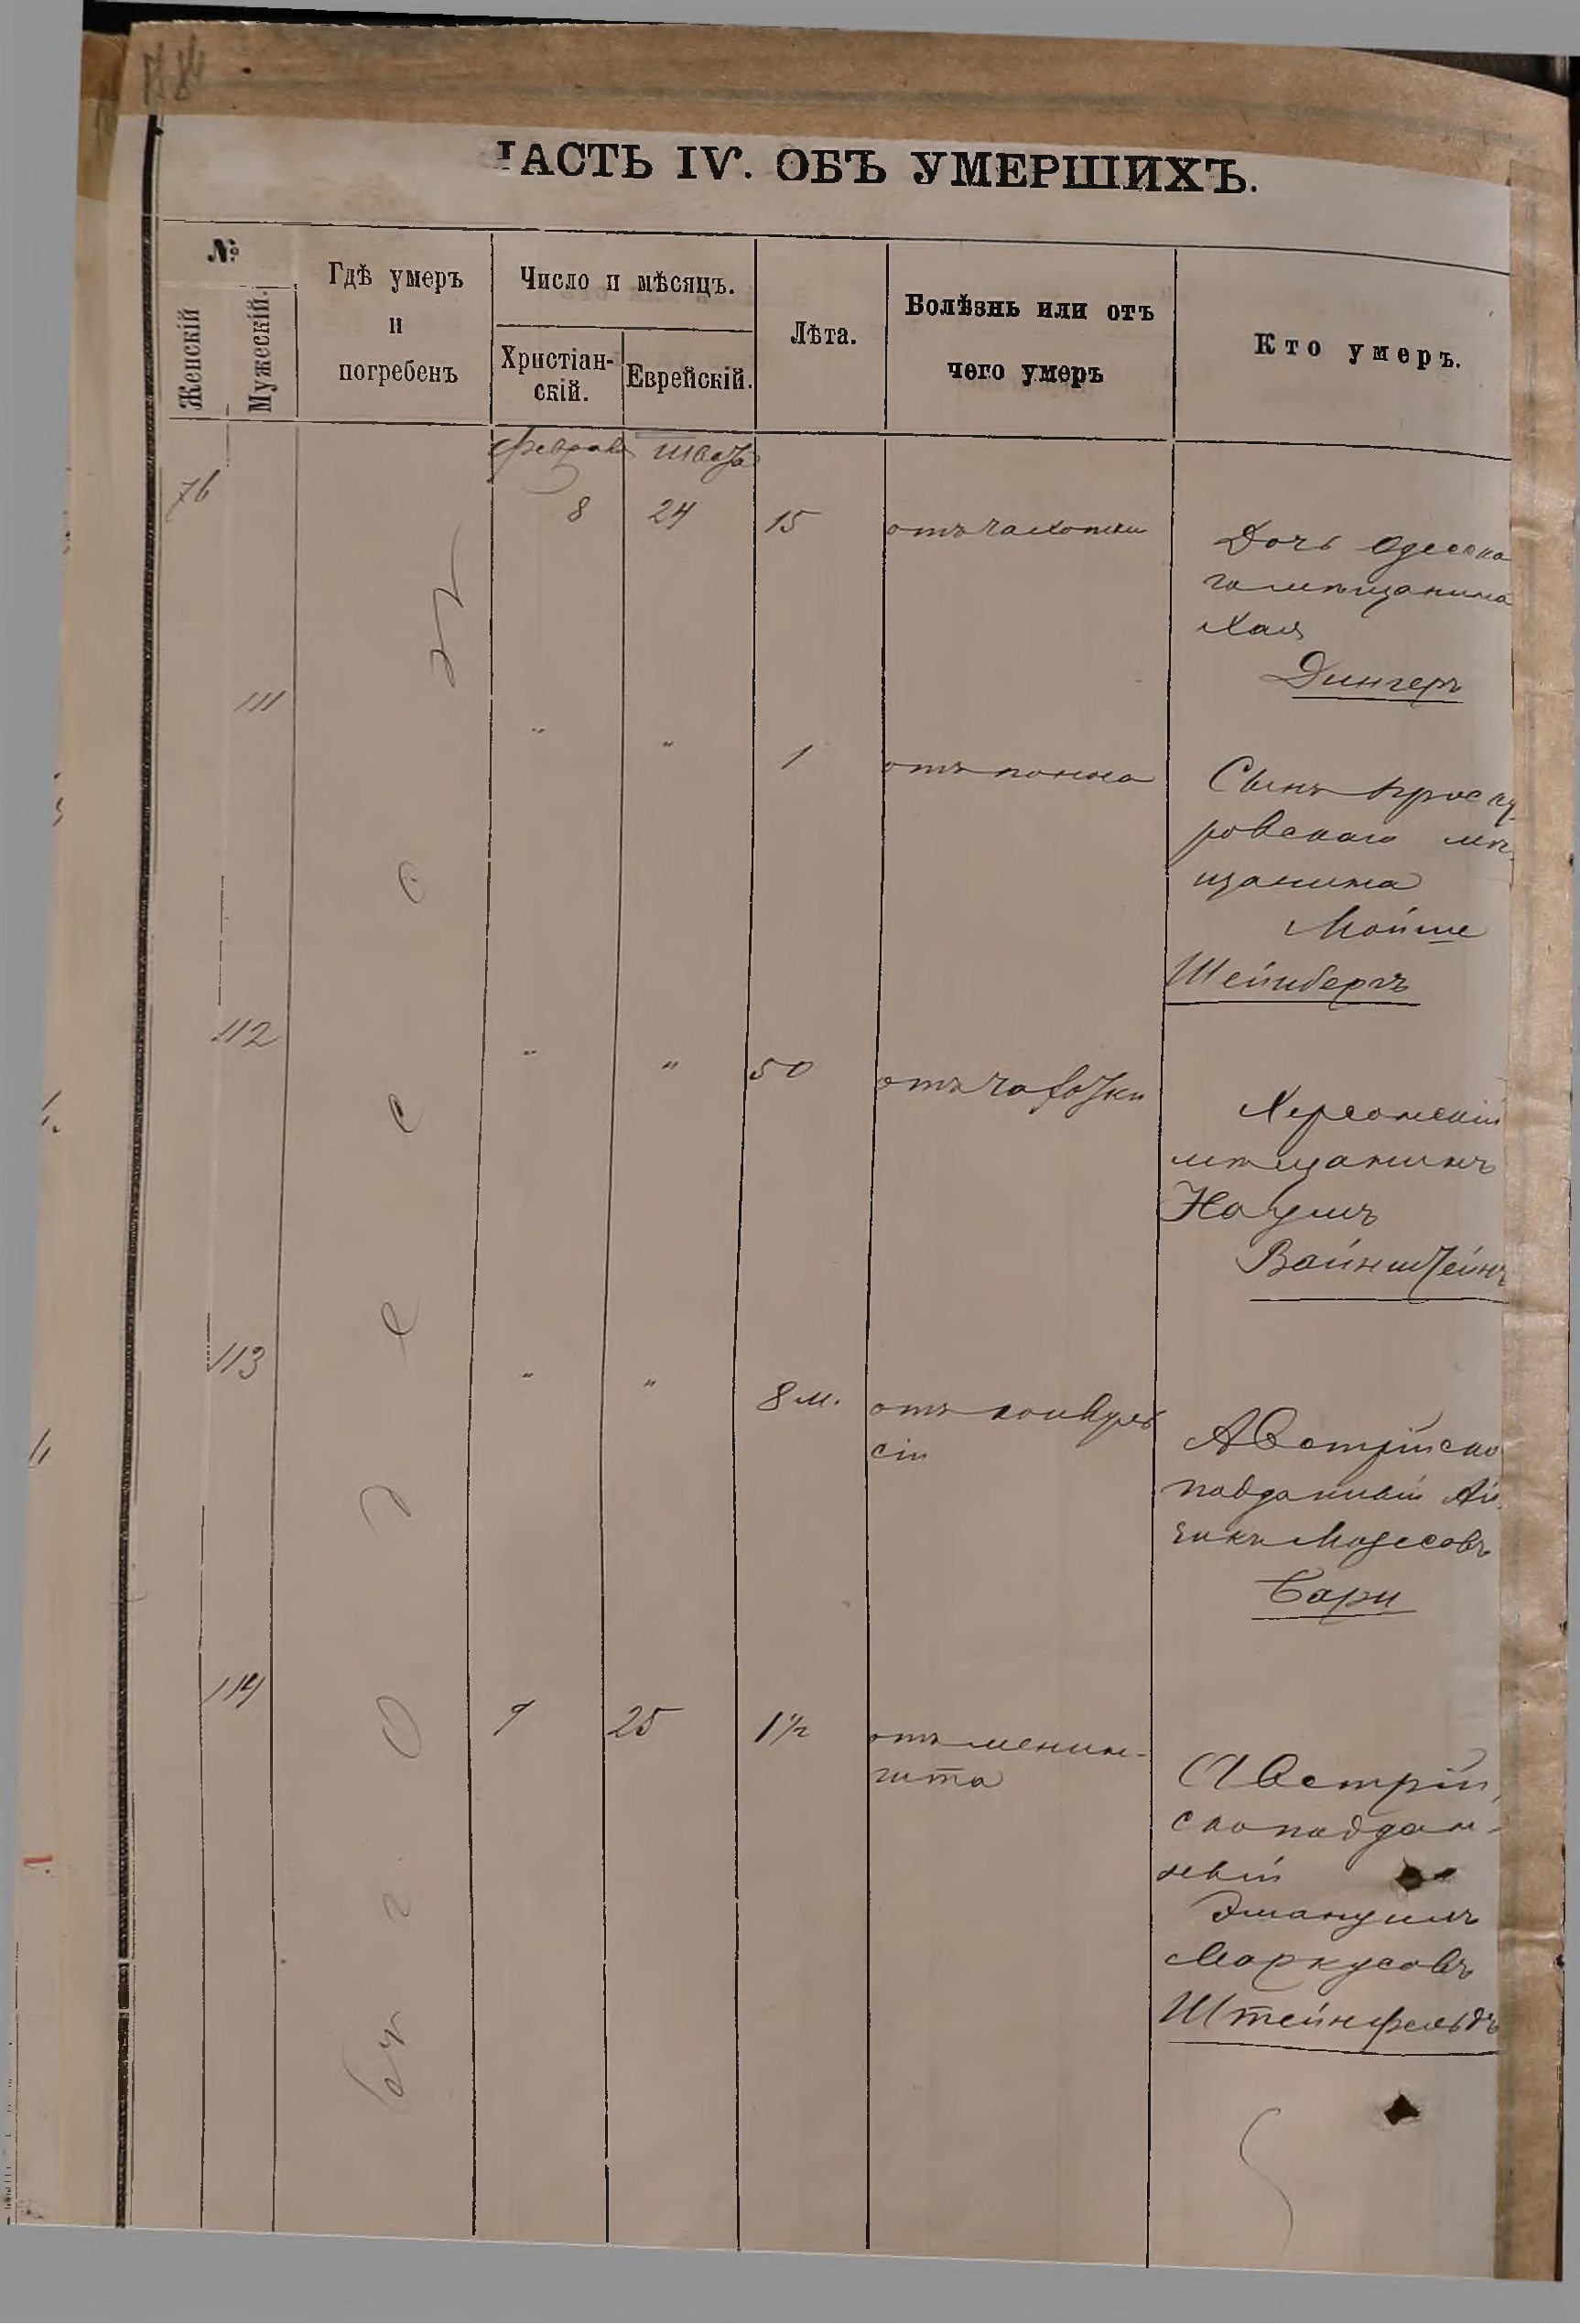 ЧАСТЬ IV. ОБЪ УМЕРШИХЪ.
№
Женскій
Мужескій.
Гдѣ умеръ
и
погребенъ
Число и мѣсяцъ.
Христіан-
скій.
Еврейскій.
Лѣта.
Болѣзнь или отъ
чего умеръ
Кто умеръ.
въ г. Одессѣ
Февраля Шватъ
76 8 24 15 отъ чахотки
Дочь Одесска
го мѣщанина
Хая
Дингеръ
111 " " 1 отъ поноса
Сынъ Проску
ровскаго мѣ
щанина
Мойше
Шейнбергъ
112 " " 50 отъ чахотки
Херсонскій
мѣщанинъ
Наумъ
Вайнштейнъ
113 " " 8 м. отъ конвуль
сіи
Австрійско
подданный Ай
зикъ Мозесовъ
Бари
114 9 25 1½ отъ менин-
гита
Австрій
скоподдан-
ный
Эмануилъ
Маркусовъ
Штейнфельдъ